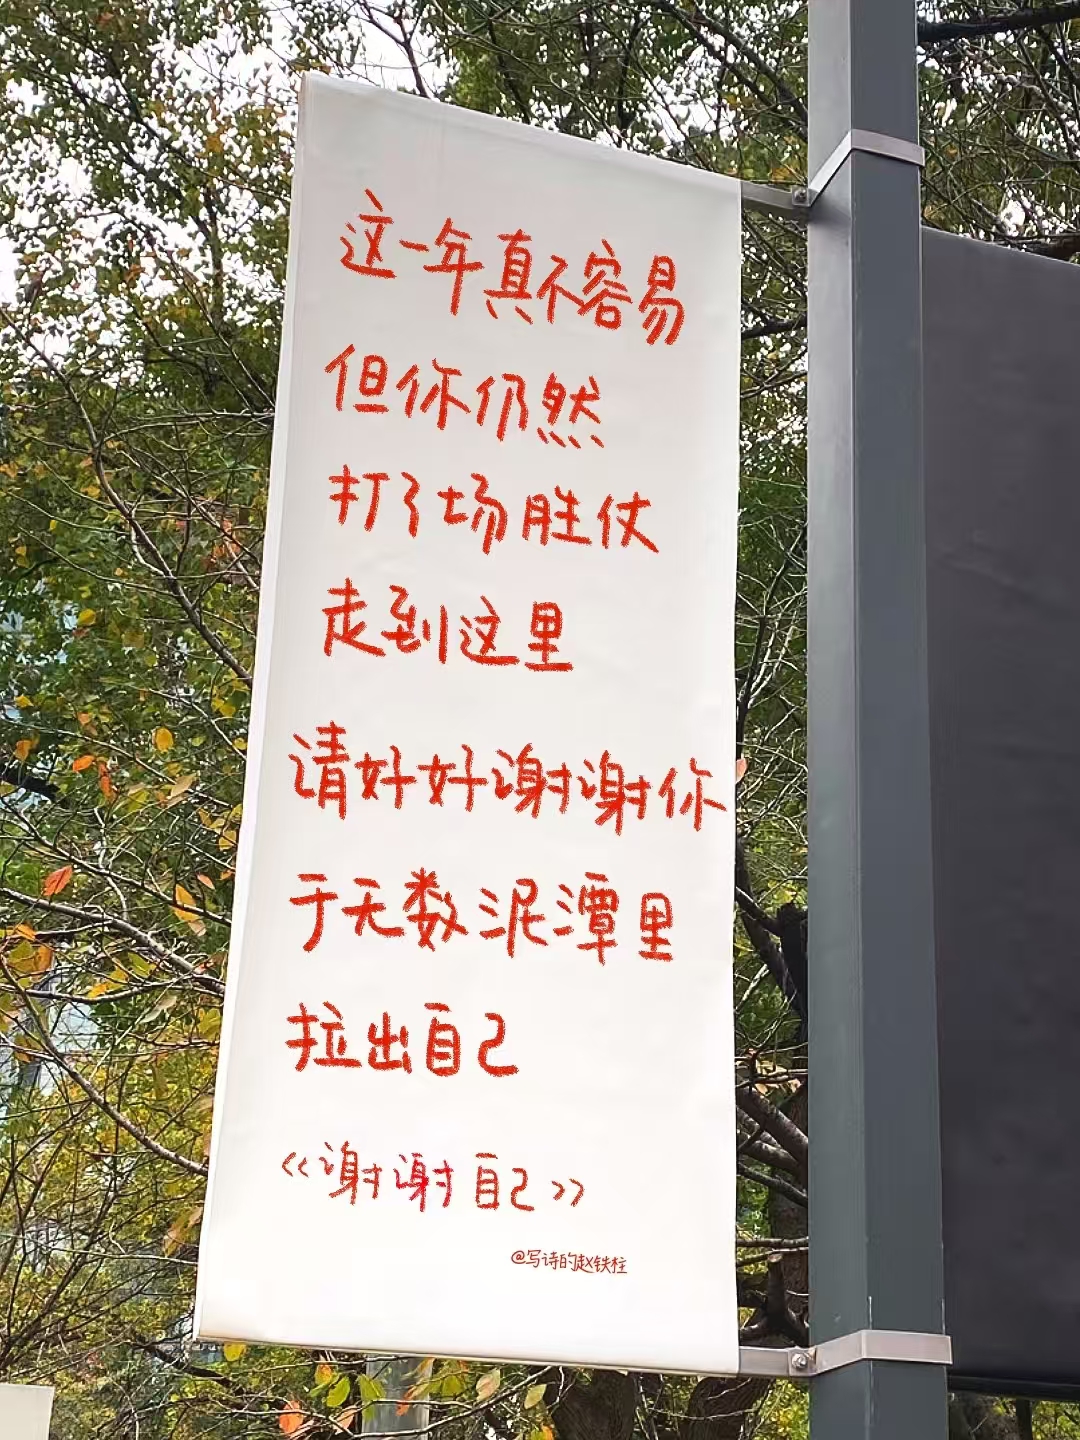 这一年真不容易
但你仍然
打了场胜仗
走到这里
请好好谢谢你
于无数泥潭里
拉出自己
《谢谢自己》
@写诗的赵铁柱